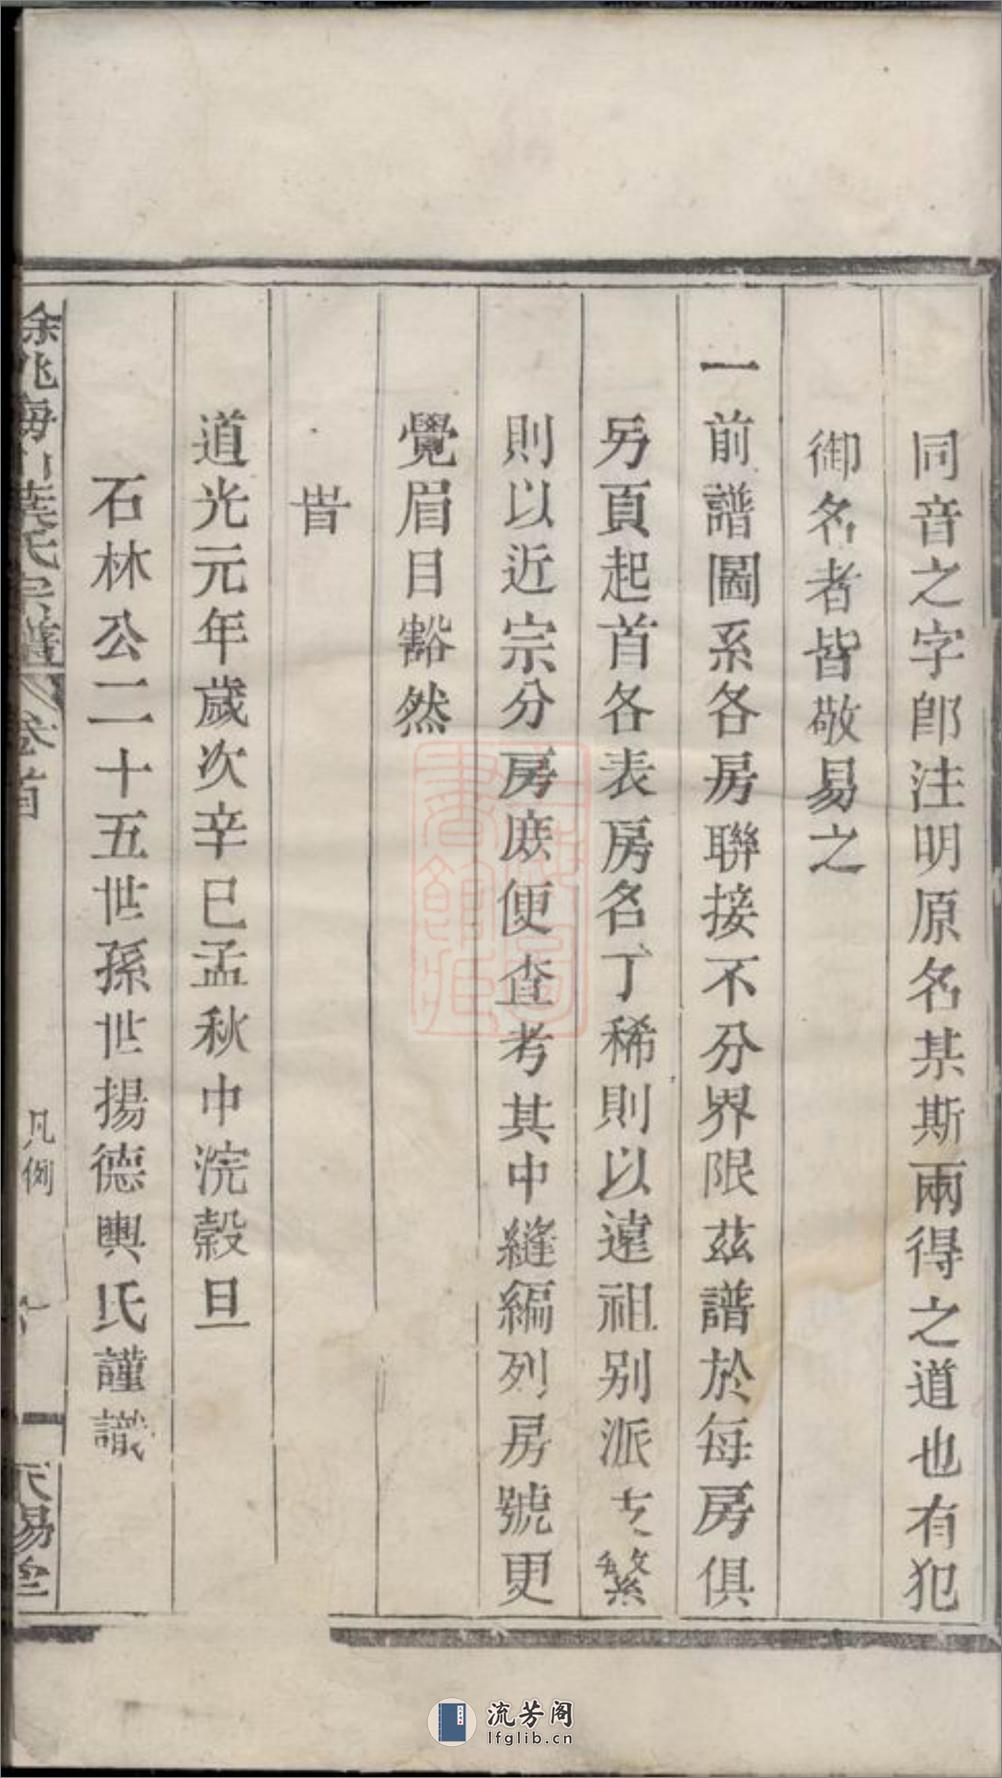 同音之字卽注明原名某斯兩得之道也有犯
御名者皆敬易之
一前譜圖系各房聯接不分界限茲譜於每房俱
另頁起首各表房名丁稀則以遠祖别派支繁
則以近宗分房庻便查考其中縫編列房號更
覺眉目豁然
旹
道光元年歲次辛巳孟秋中浣穀旦
石林公二十五世孫世揚德輿氏謹識
葉氏宗譜
卷首
凡例
流芳阁
lfglib.cn